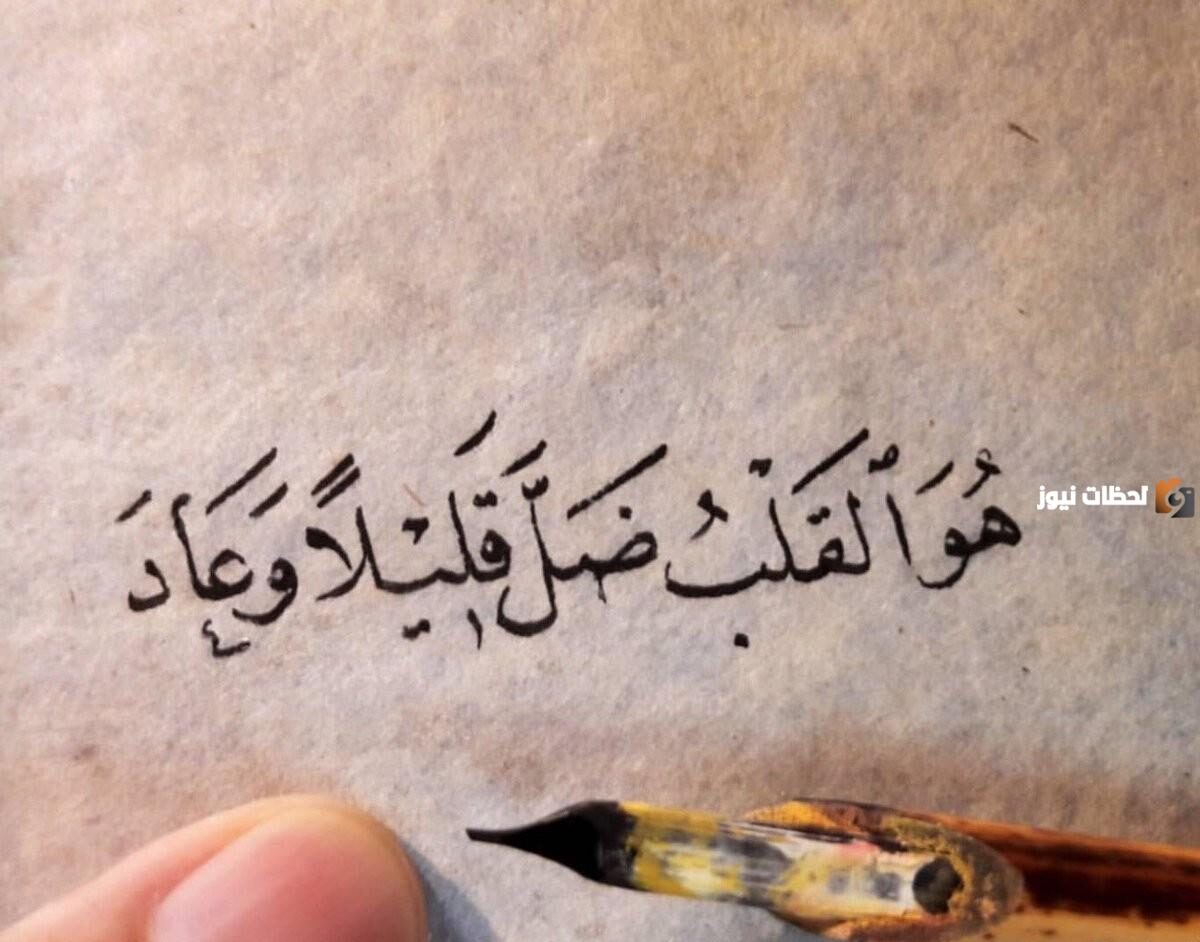 هُوَ ٱلْقَلْبُ ضَلَّ قَلِيْلًا وَعَادَ
لحظات نيوز